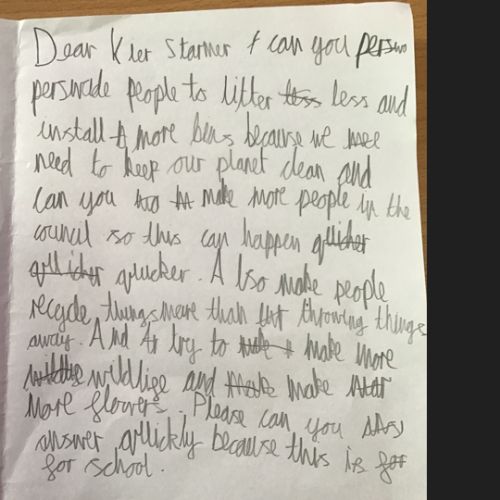 Dear Kier Starmer t can you perswo
perswade people to litter less less and
install A more bins because we nee
need to keep our planet clean and
can you too make more people in the
council so this can happen qlicher
qllicher quicker. Also make people
recycle, things more than throwing things
away. And try to make more
wildlige and make make
More flowers. Please can you
answer qllickly because this is for
for school.